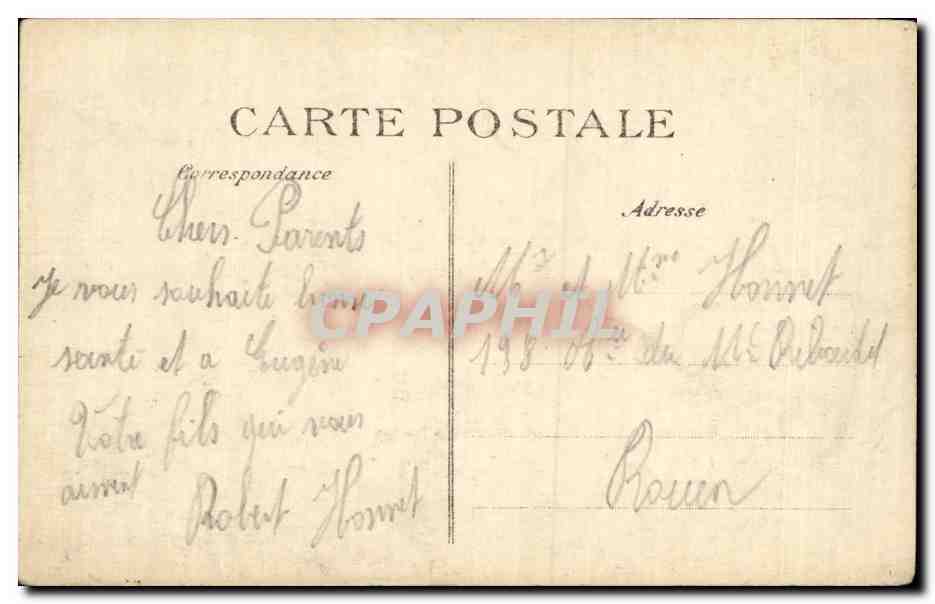 CARTE POSTALE
Correspondance
Chers Parents
Je vous souhaite bonne
santé et a Eugène
Votre fils qui vous
aiment
Robert Honnet
Adresse
Mr et Mme Honnet
198 du
Rouen
CPAPHIL